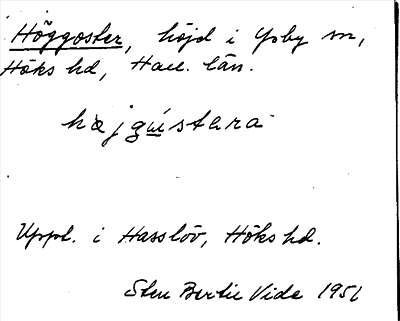 Höggoster, höjd i Ysby sn,
Höks hd, Hall. län.
hæjgústara
Uppt. i Hasslöv, Höks hd.
Sten Bertil Vide 1951